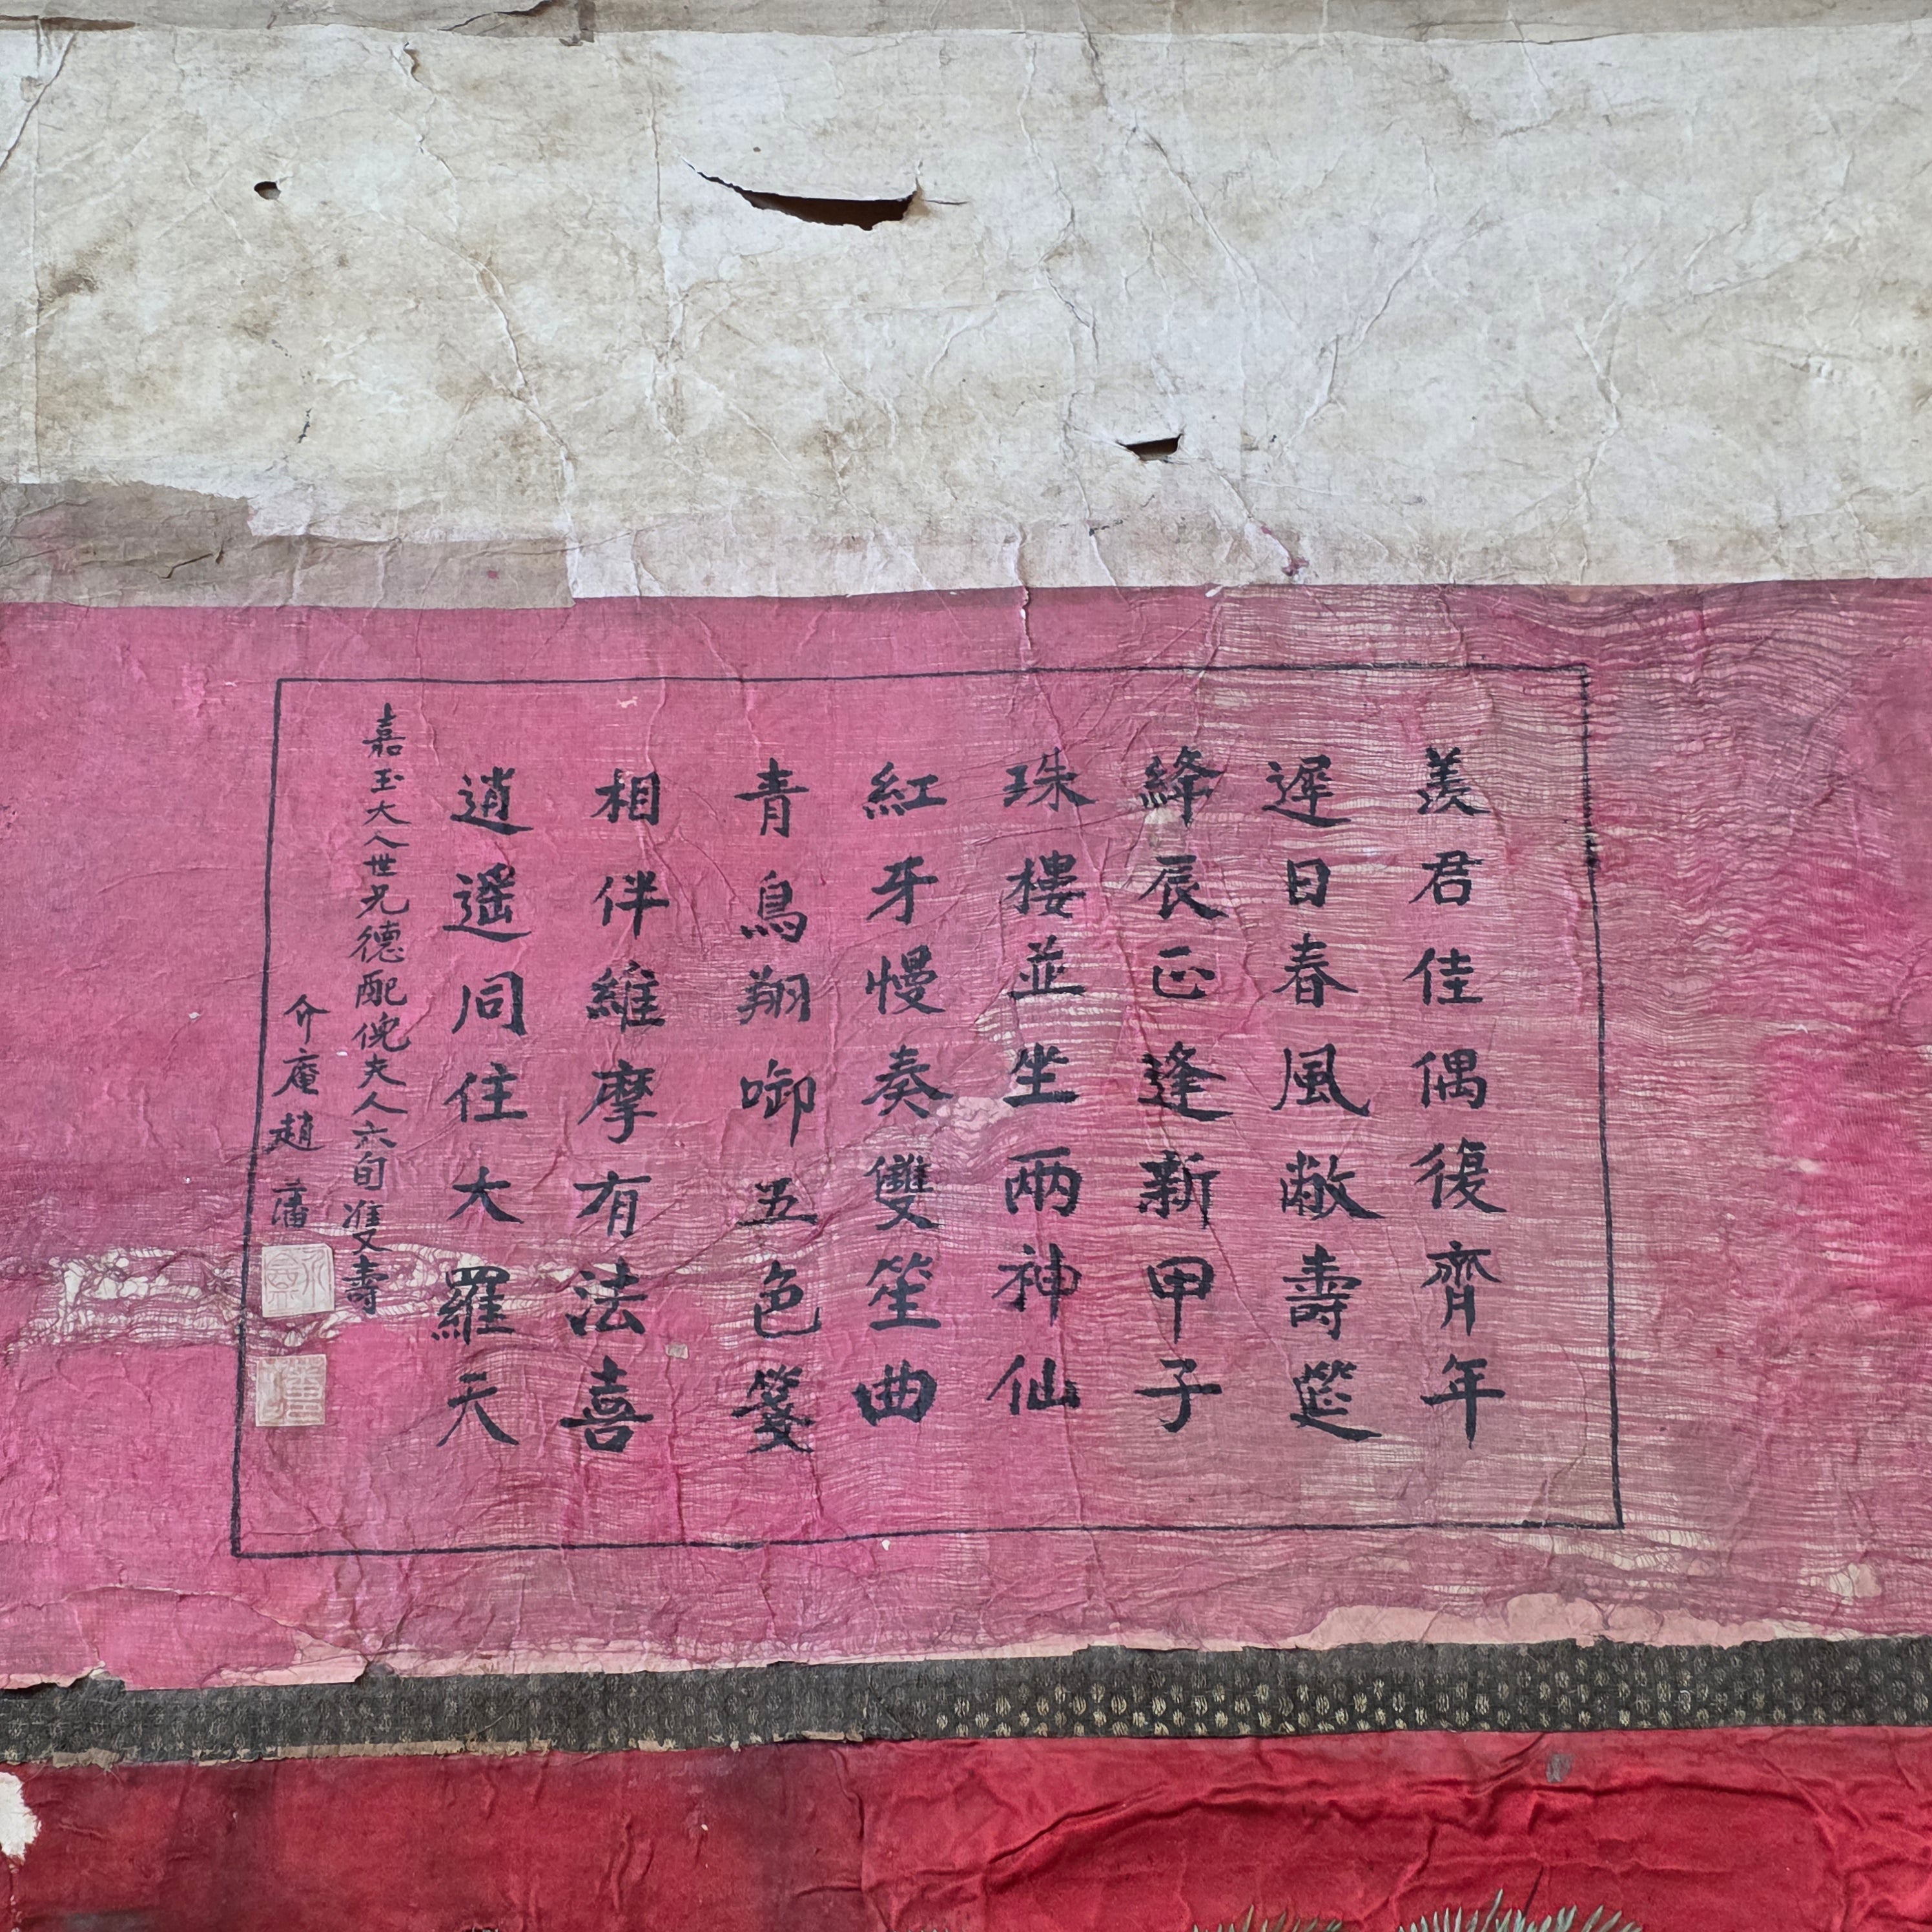 羨君佳偶復齊年
遲日春風敞壽筵
絳辰正逢新甲子
珠樓並坐兩神仙
紅牙慢奏雙笙曲
青鳥翔啣五色箋
相伴維摩有法喜
逍遙同住大羅天
嘉玉大人世兄德配倪夫人六旬雙壽
介庵趙藩